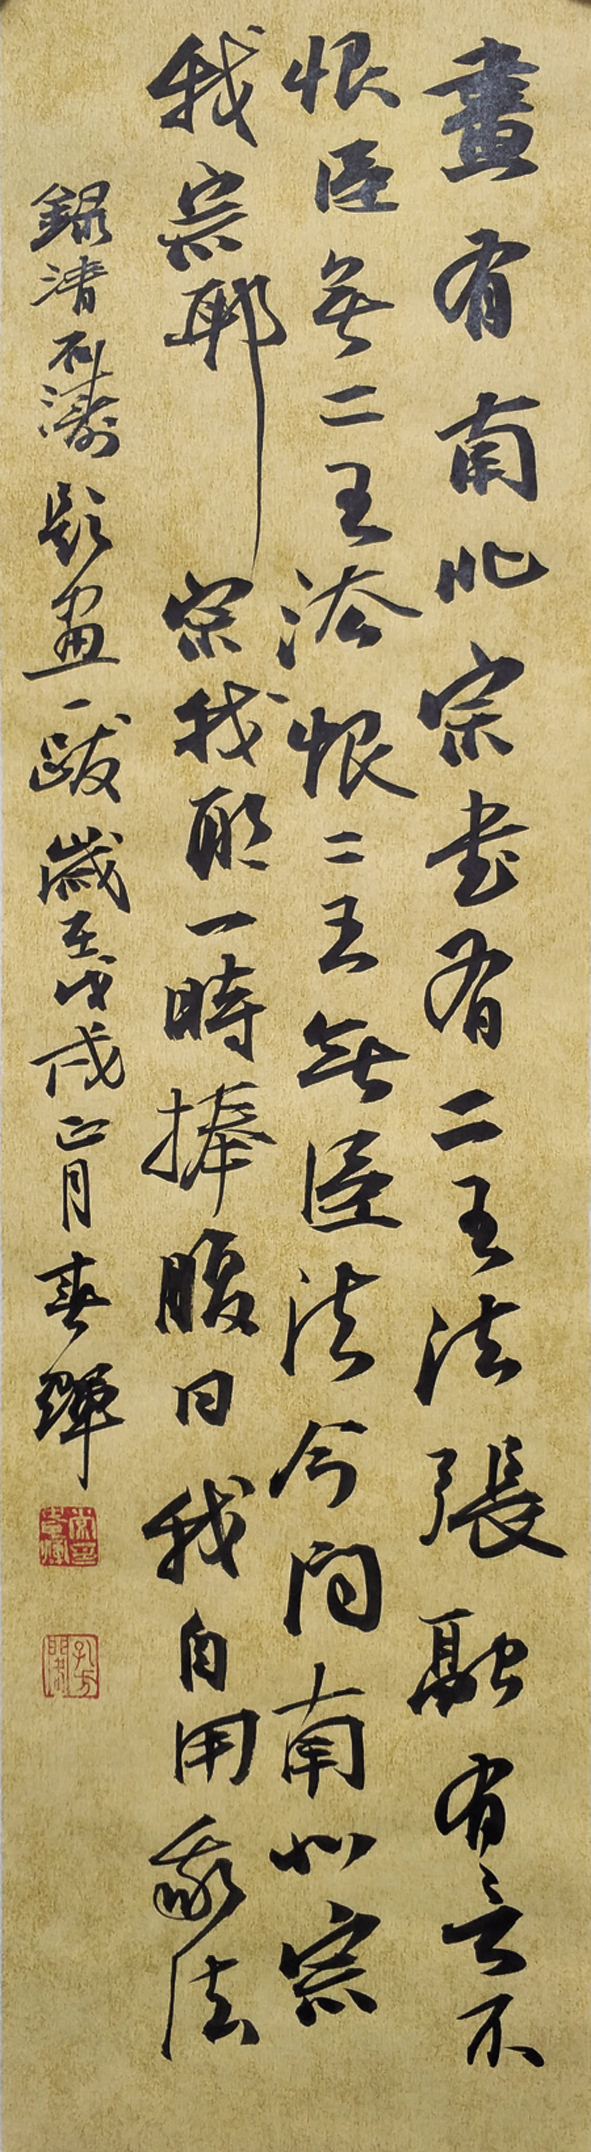 畫有南北宗書有二王法張融有言不
恨臣無二王法恨二王無臣法今問南北宗
我宗耶宗我耶一時捧腹曰我自用我法
錄清石濤題畫一跋歲在戊戌正月春暉